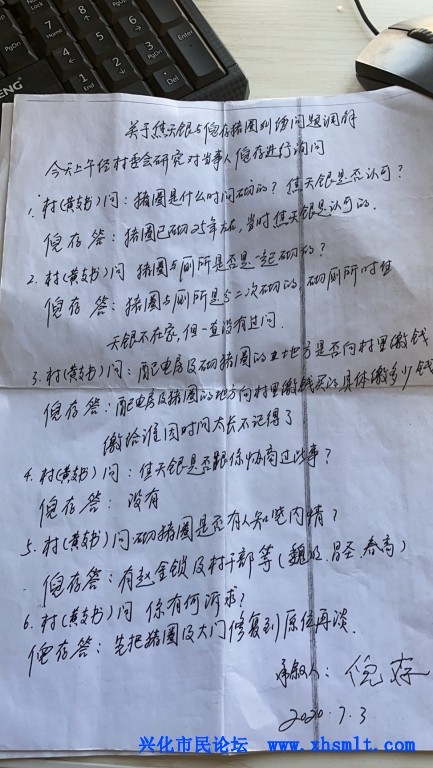 关于焦天银与倪存猪圈纠纷问题调解
今天上午经村委会研究对当事人倪存进行询问
1. 村(黄支书)问：猪圈是什么时间砌的？焦天银是否认可？
倪存答：猪圈已砌25年左右，当时焦天银是认可的.
2. 村(黄支书)问 猪圈与厕所是否是一起砌的？
倪存 答：猪圈与厕所是分二次砌的，砌厕所时焦
天银不在家，但一直没有过问.
3. 村(黄支书)问：配电房及砌猪圈的土地方是否向村里缴钱
倪存答：配电房及猪圈的地方向村里缴钱买的，具体缴多少钱
缴给谁因时间太长不记得了
4. 村(黄支书)问：焦天银是否跟你协商过此事？
倪存答：没有
5. 村(黄支书)问砌猪圈是否有人知晓内情？
倪存答：有赵金锁及村干部等(魏 昌圣.春高)
6. 村(黄支书)问 你有何诉求？
倪存答：先把猪圈及大门修复到原位再谈.
承叙人：倪存
2020.7.3
兴化市民论坛 www.xhsmlt.com